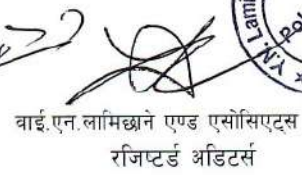 वाई.एन.लामिछाने एण्ड एसोसिएट्स
रजिष्टर्ड अडिटर्स
Y.N. Lami